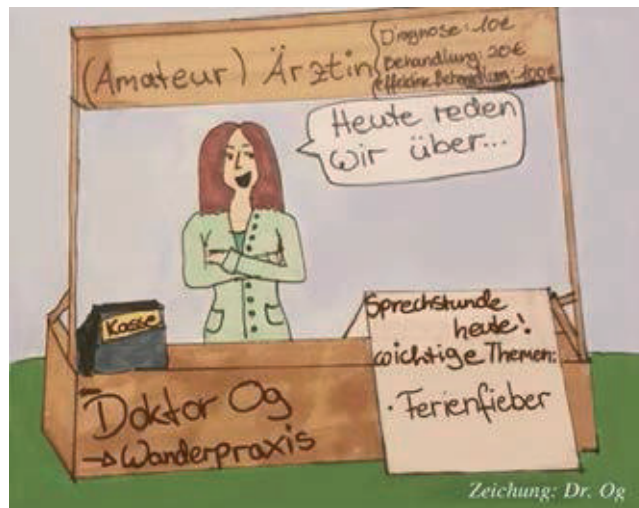 (Amateur) Ärztin
Diagnose: 10€
Behandlung: 20€
Effektive Behandlung: 100€
Heute reden
wir über...
Kasse
Sprechstunde
heute!
wichtige Themen:
· Ferienfieber
Doktor Og
→ Wanderpraxis
Zeichung: Dr. Og